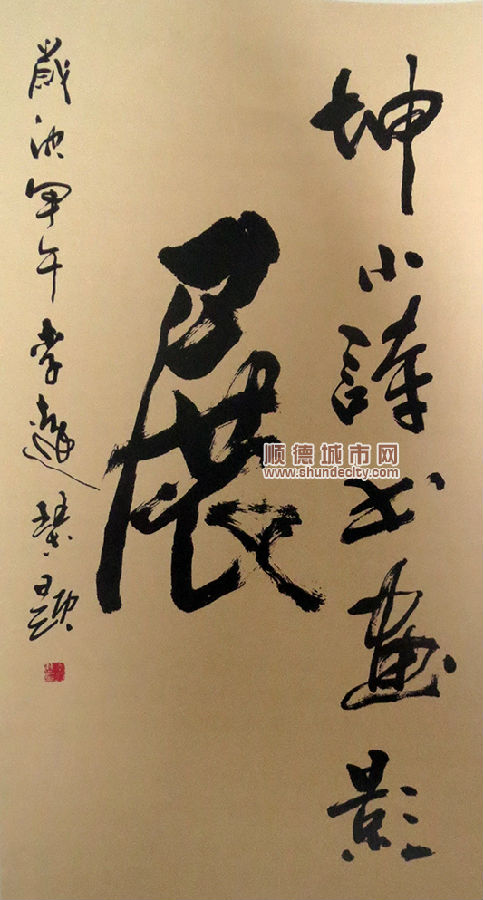 坤小詩书畫影
展
歲次甲午李遊
題
顺德城市网
www.shundecity.com